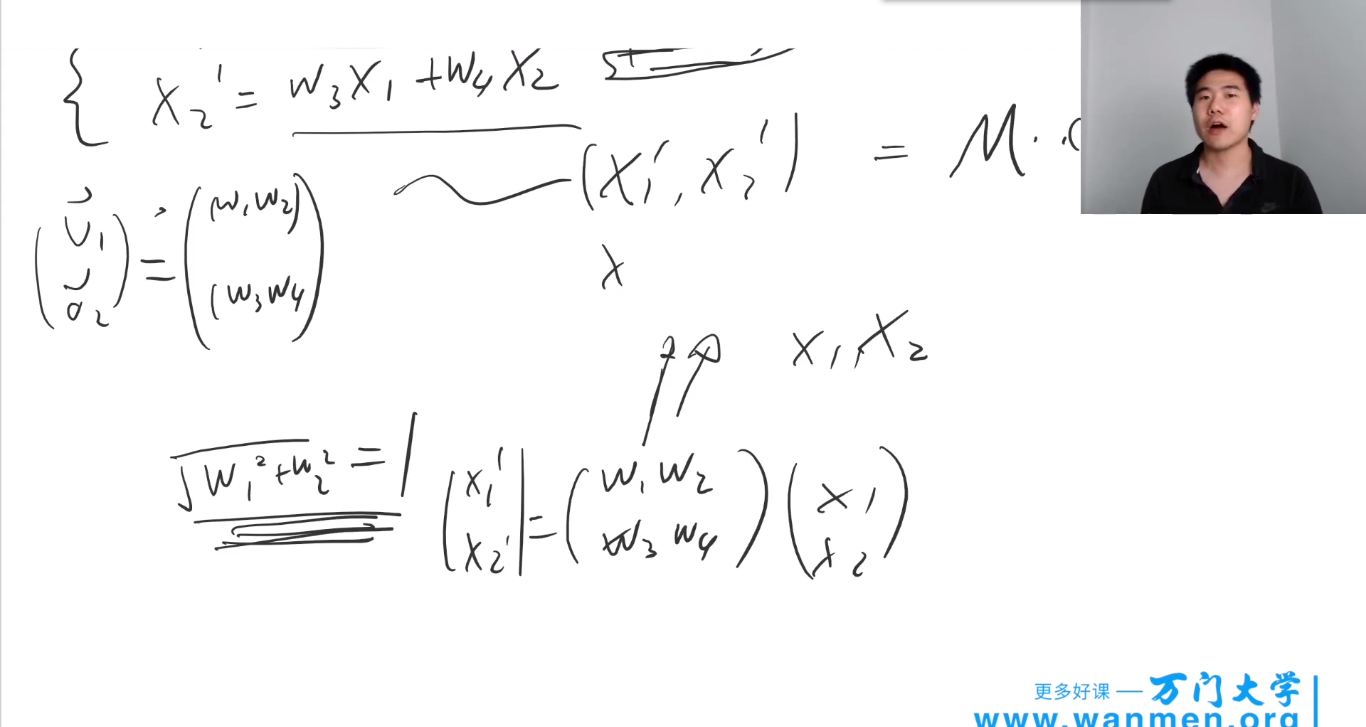 x₂' = w₃x₁ + w₄x₂
(x₁', x₂') = M ·
(v₁ v₂) = ((w₁ w₂) (w₃ w₄)
x
x₁, x₂
√w₁² + w₂² = 1
(x₁' x₂') = (w₁ w₂ w₃ w₄) (x₁ x₂)
更多好课 — 万门大学
www.wanmen.org